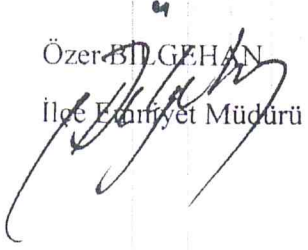 Özer BİLGEHAN
İlçe Emniyet Müdürü